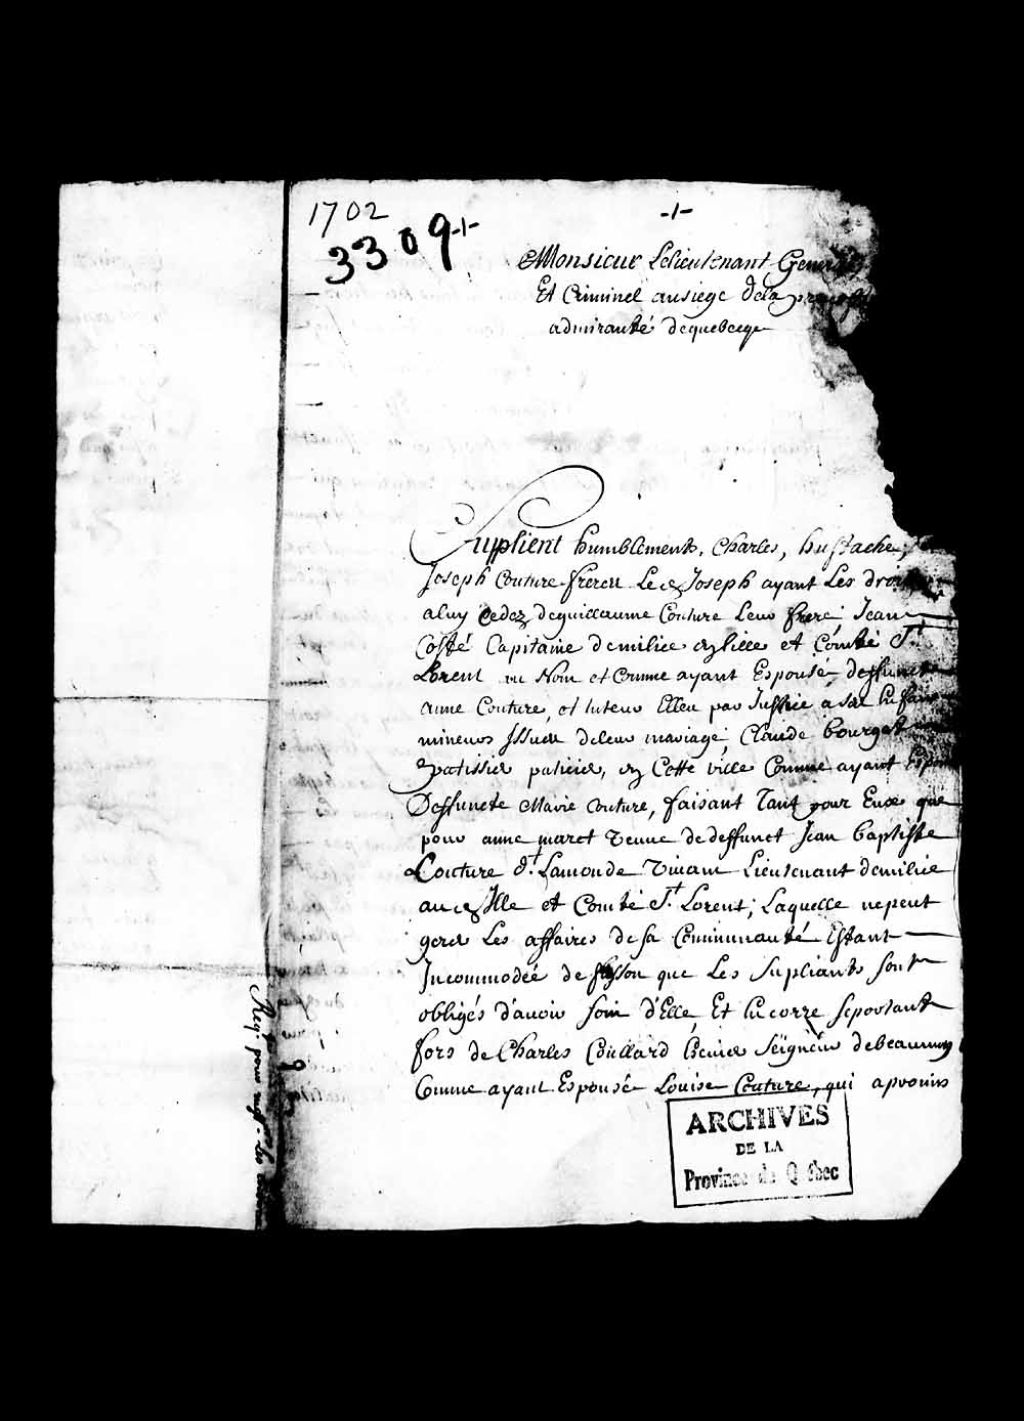 1702
3309
-1-
Monsieur Lelieutenant General
Et Criminel ausiege dela
admirauté dequebecq
Suplient humblement, Charles, hustache,
Joseph Couture freres Led Joseph ayant Les droits
aluy Cedez deguillaume Couture Leur frere; Jean
Costé Capitaine demilice et Comté St
Lorent au Nom et Comme ayant Espousé deffunct
anne Couture, et tuteur Esleu par Justice a
mineurs Issües deleur mariage; Claude bourget
patissier en Cette ville Comme ayant Espou
Deffuncte Marie Couture, faisant Tant pour Eux que
pour anne maret veuve de deffunct Jean baptiste
Couture Sr. Lamonde vivant Lieutenant demilice
aud Isle et Comté St. Lorent; Laquelle nepeut
gerer Les affaires de sa Communauté Estant
Incommodée de que Les Supliants sont
obligés d'avoir soin d'Elle, Et seportant
fors de Charles Coüillard Escuier Seigneur debeaumon
Comme ayant Espousé Louise Couture, qui aprouvera
ARCHIVES
DE LA
Province de Québec